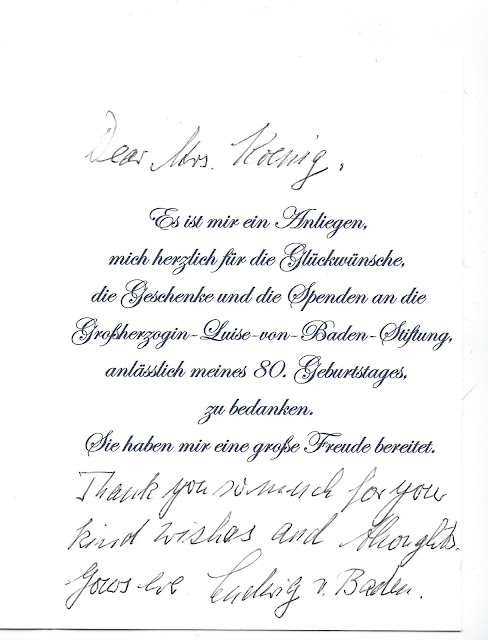 Dear Mrs. Koenig,
Es ist mir ein Anliegen,
mich herzlich für die Glückwünsche,
die Geschenke und die Spenden an die
Großherzogin-Luise-von-Baden-Stiftung,
anlässlich meines 80. Geburtstages,
zu bedanken.
Sie haben mir eine große Freude bereitet.
Thank you so much for your
kind wishes and thoughts.
Ludwig v. Baden.